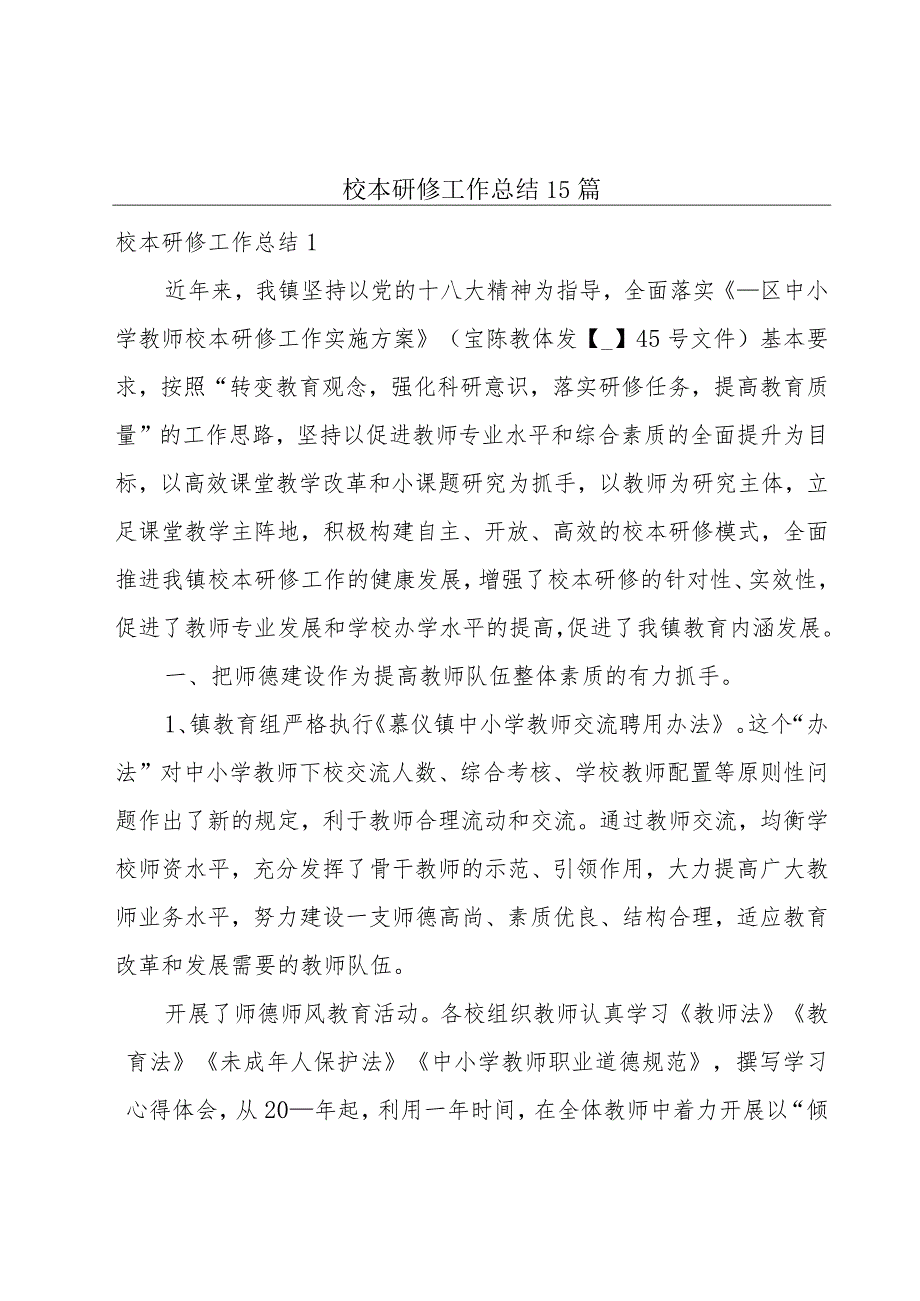 校本研修工作总结15篇
校本研修工作总结1
近年来，我镇坚持以党的十八大精神为指导，全面落实《—区中小
学教师校本研修工作实施方案》（宝陈教体发【_】45号文件）基本要
求，按照“转变教育观念，强化科研意识，落实研修任务，提高教育质
量”的工作思路，坚持以促进教师专业水平和综合素质的全面提升为目
标，以高效课堂教学改革和小课题研究为抓手，以教师为研究主体，立
足课堂教学主阵地，积极构建自主、开放、高效的校本研修模式，全面
推进我镇校本研修工作的健康发展，增强了校本研修的针对性、实效性，
促进了教师专业发展和学校办学水平的提高，促进了我镇教育内涵发展。
一、把师德建设作为提高教师队伍整体素质的有力抓手。
1、镇教育组严格执行《慕仪镇中小学教师交流聘用办法》。这个“办
法”对中小学教师下校交流人数、综合考核、学校教师配置等原则性问
题作出了新的规定，利于教师合理流动和交流。通过教师交流，均衡学
校师资水平，充分发挥了骨干教师的示范、引领作用，大力提高广大教
师业务水平，努力建设一支师德高尚、素质优良、结构合理，适应教育
改革和发展需要的教师队伍。
开展了师德师风教育活动。各校组织教师认真学习《教师法》《教
育法》《未成年人保护法》《中小学教师职业道德规范》，撰写学习
心得体会，从20—年起，利用一年时间，在全体教师中着力开展以“倾